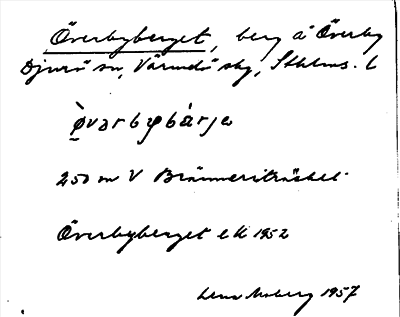 Överbyberget, berg å Överby
Djurö sn, Värmdö sky, Sthlms. l
òvərbybàrjə
250 m V Bränneriträsket
Överbyberget ek 1952
Lena Moberg 1957